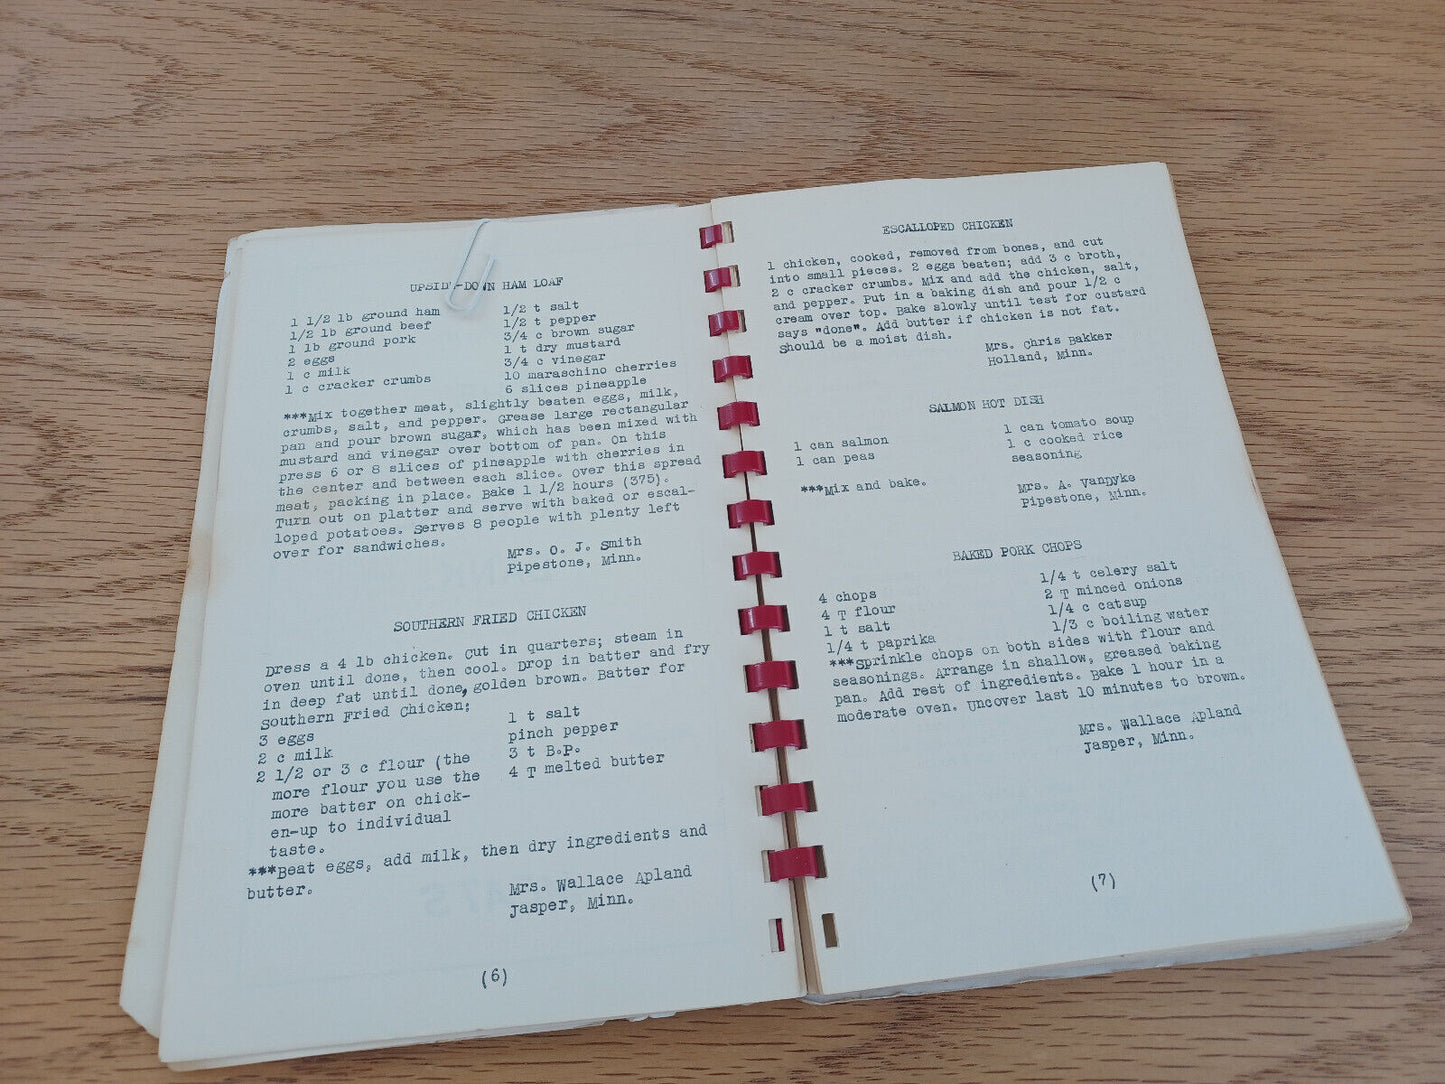 UPSIDE-DOWN HAM LOAF
1 1/2 lb ground ham
1/2 lb ground beef
1 lb ground pork
2 eggs
1 c milk
1 c cracker crumbs
1/2 t salt
1/2 t pepper
3/4 c brown sugar
1 t dry mustard
3/4 c vinegar
10 maraschino cherries
6 slices pineapple
***Mix together meat, slightly beaten eggs, milk,
crumbs, salt, and pepper. Grease large rectangular
pan and pour brown sugar, which has been mixed with
mustard and vinegar over bottom of pan. On this
press 6 or 8 slices of pineapple with cherries in
the center and between each slice. Over this spread
meat, packing in place. Bake 1 1/2 hours (375).
Turn out on platter and serve with baked or escal-
loped potatoes. Serves 8 people with plenty left
over for sandwiches.
Mrs. O. J. Smith
Pipestone, Minn.
SOUTHERN FRIED CHICKEN
Dress a 4 lb chicken. Cut in quarters; steam in
oven until done, then cool. Drop in batter and fry
in deep fat until done, golden brown. Batter for
Southern Fried Chicken:
3 eggs
2 c milk
2 1/2 or 3 c flour (the
more flour you use the
more batter on chick-
en-up to individual
taste.
1 t salt
pinch pepper
3 t B.P.
4 T melted butter
***Beat eggs, add milk, then dry ingredients and
butter.
Mrs. Wallace Apland
Jasper, Minn.
(6)
ESCALLOPED CHICKEN
1 chicken, cooked, removed from bones, and cut
into small pieces. 2 eggs beaten; add 3 c broth,
2 c cracker crumbs. Mix and add the chicken, salt,
and pepper. Put in a baking dish and pour 1/2 c
cream over top. Bake slowly until test for custard
says "done". Add butter if chicken is not fat.
Should be a moist dish.
Mrs. Chris Bakker
Holland, Minn.
SALMON HOT DISH
1 can salmon
1 can peas
1 can tomato soup
1 c cooked rice
seasoning
***Mix and bake.
Mrs. A. VanDyke
Pipestone, Minn.
BAKED PORK CHOPS
4 chops
4 T flour
1 t salt
1/4 t paprika
1/4 t celery salt
2 T minced onions
1/4 c catsup
1/3 c boiling water
***Sprinkle chops on both sides with flour and
seasonings. Arrange in shallow, greased baking
pan. Add rest of ingredients. Bake 1 hour in a
moderate oven. Uncover last 10 minutes to brown.
Mrs. Wallace Apland
Jasper, Minn.
(7)